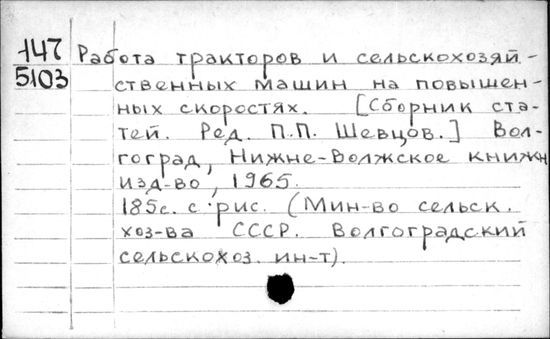 147 Работа тракторов и сельскохозяй-
5103 ственных машин на повышен-
ных скоростях. [Сборник ста-
тей. Ред. П.П. Шевцов.] Вол-
гоград, Нижне-Волжское книжн
изд-во, 1965.
185с. с рис. (Мин-во сельск.
хоз-ва СССР. Волгоградский
сельскохоз. ин-т).